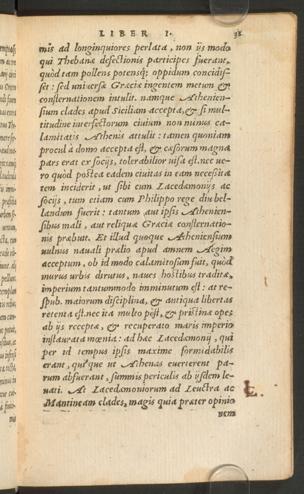 LIBER I. 38
mis ad longinquiores perlata, non ijs modo
qui Thebanæ defectionis participes fuerant,
quòd tam pollens potensq́; oppidum concidis-
set: sed uniuersæ Græciæ ingentem metum &
consternationem intulit. namque Athenien-
sium clades apud Siciliam accepta, & si mul-
titudine interfectorum ciuium non minus ca-
lamitatis Athenis attulit: tamen quoniam
procul à domo accepta est, & cæsorum magna
pars erat ex socijs, tolerabilior uisa est. nec ue-
rò quòd postea eadem ciuitas in eam necessita
tem inciderit, ut sibi cum Lacedæmonijs ac
socijs, tum etiam cum Philippo rege diu bel-
landum fuerit: tantum aut ipsis Athenien-
sibus mali, aut reliquæ Græciæ consternatio-
nis præbuit. Et illud quoque Atheniensium
uulnus nauali prælio apud amnem Aegim
acceptum, ob id modo calamitosum fuit, quòd
murus urbis dirutus, naues hostibus traditæ,
imperium tantummodo imminutum est: at re-
spub. maiorum disciplina, & antiqua libertas
retenta est. nec ita multo pòst, & pristinæ opes
ab ijs recepta, & recuperato maris imperio
instaurata mœnia: ad hæc Lacedæmonij, qui
per id tempus ipsis maxime formidabilis
erant, quique ut Athenas euerterent pa-
rum abfuerant, summis periculis ab ijsdem le-
uati. At Lacedæmoniorum ad Leuctra ac
Mantineam clades, magis quia præter opinio
nem